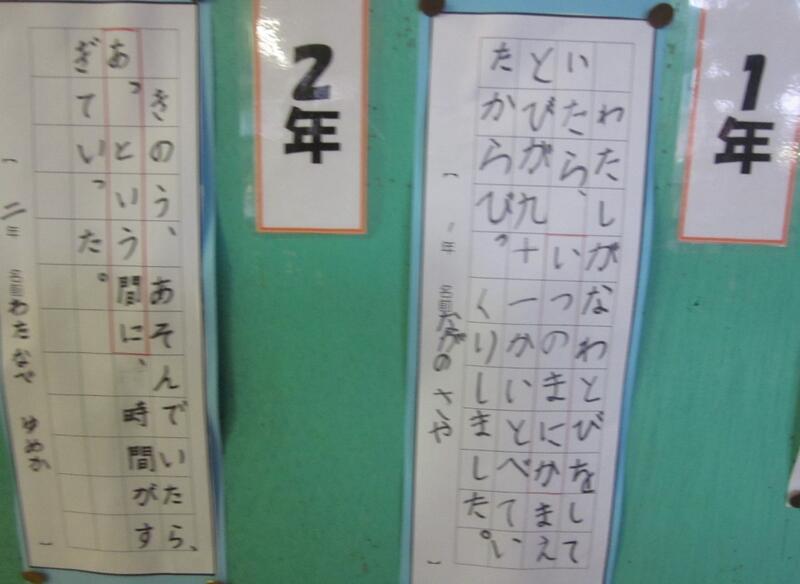 1年
わたしがなわとびをして
いたら、いつのまにかまえ
とびが九十一かいとべてい
たからびっくりしました。
( 1年 名前 ながの さや )
2年
きのう、あそんでいたら、
あっという間に、時間がす
ぎていった。
( 二年 名前 わたなべ ゆめか )